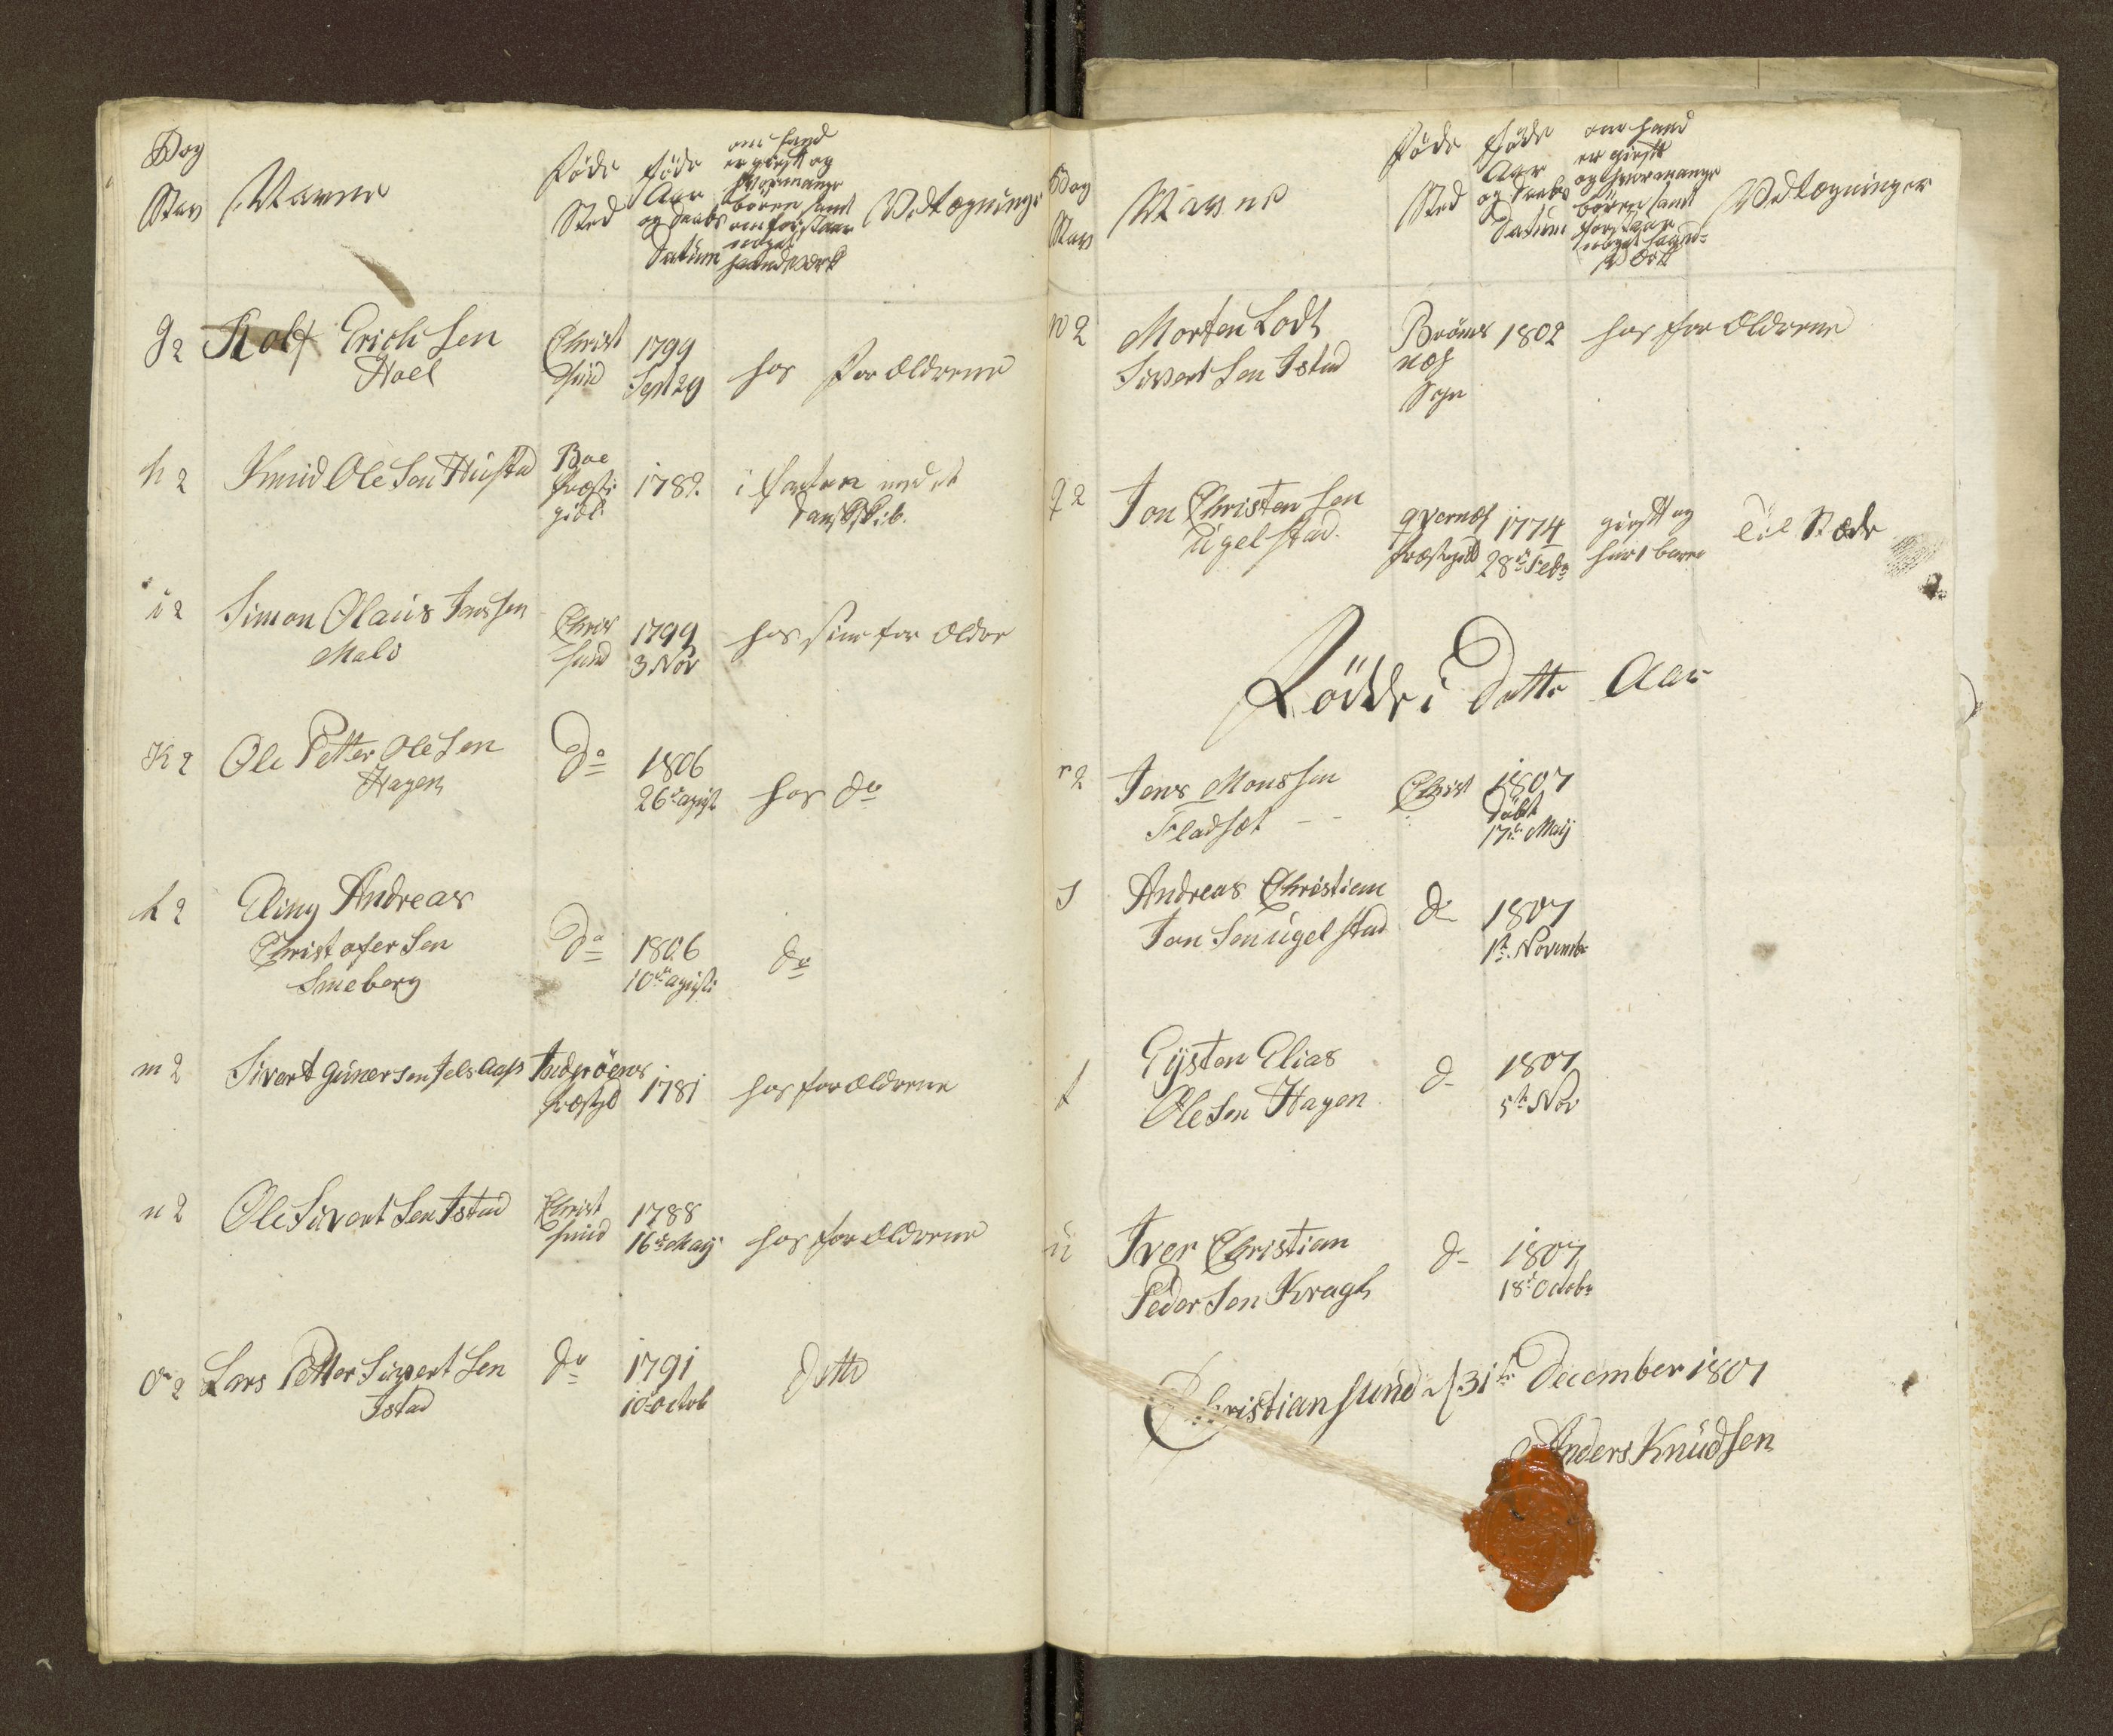 Bog
Stav
Navne
Föde
Sted
föde
Aar
og Daabs
Datum
om hand
er gieft og
hvormange
börn samt
om forstaar
noget
haandværk
Vedtegninge
g2 Rolf Erichsen
Hoel
Christ
sund
1799
Sept 29
hos Forældrene
h2 Knud Olesen Hustad
Boe
Præste
gield
1782.
i farten med et
Dansk skib.
i2 Simon Olaus Jenssen
Malo
Chris
sund
1799
3 Nov
hos sine forældre
K2 Ole Petter Olesen
Hagen
Do
1806
26de agust
hos do
L2 Eling Andreas
Christofersen
Smeborg
Do
1806
10de agusti
do
m2 Sivert Gunersen
Inderöens
Præstgld
1781
hos forældrene
n2 Ole Sivertsen Istad
Christ
sund
1788
16de Maij
hos forældrene
o2 Lars Petter Sivertsen
Istad
do
1791
10 octob
ditto
Bog
Stav
Navne
Föde
Sted
föde
Aar
og Daabs
Datum
om hand
er gieft
og hvormange
börn samt
forstaar
noget haand-
værk
Vedtegninger
p2 Morten Lodt
Sivertsen Istad
næs
Sogn
1802
hos forældrene
q2 Jon Christensen
ugelstad.
qvernes
Præstegield
1774
28de Feb
gieft og
har 1 barn
til stæde
Födde i Dette Aar
r2 Jens Monssen
Fladset - -
Christ
1807
döbt
17de Maij
s Andreas Christian
Jonsen ugelstad
do
1807
1te Novembr
t Eysten Elias
Olesen Hagen
d-
1807
5te Nov
u Iver Christian
Pedersen Kragh
d-
1807
18de Octobr
Christiansund d 31te December 1807
Anders Knudsen